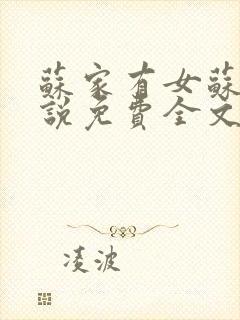 蘇家有女蘇
說免費全文
凌波